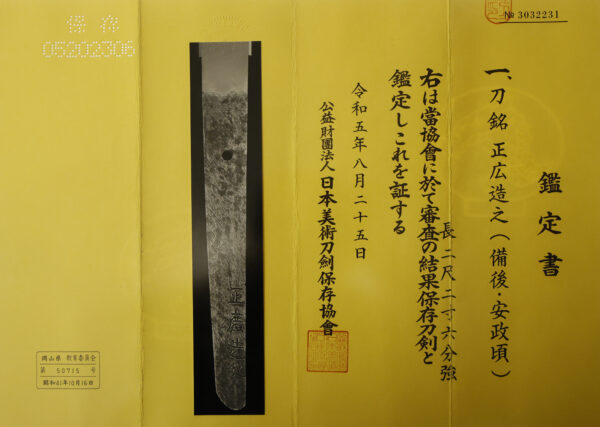 № 3032231
鑑定書
一、刀 銘 正広造之(備後・安政頃)
長二尺二寸六分強
右は當協會に於て審査の結果保存刀剣と
鑑定しこれを証する
令和五年八月二十五日
公益財團法人 日本美術刀劍保存協會
正廣造
保存
05202306
岡山県 教育委員会
第 50715 号
昭和41年10月16日